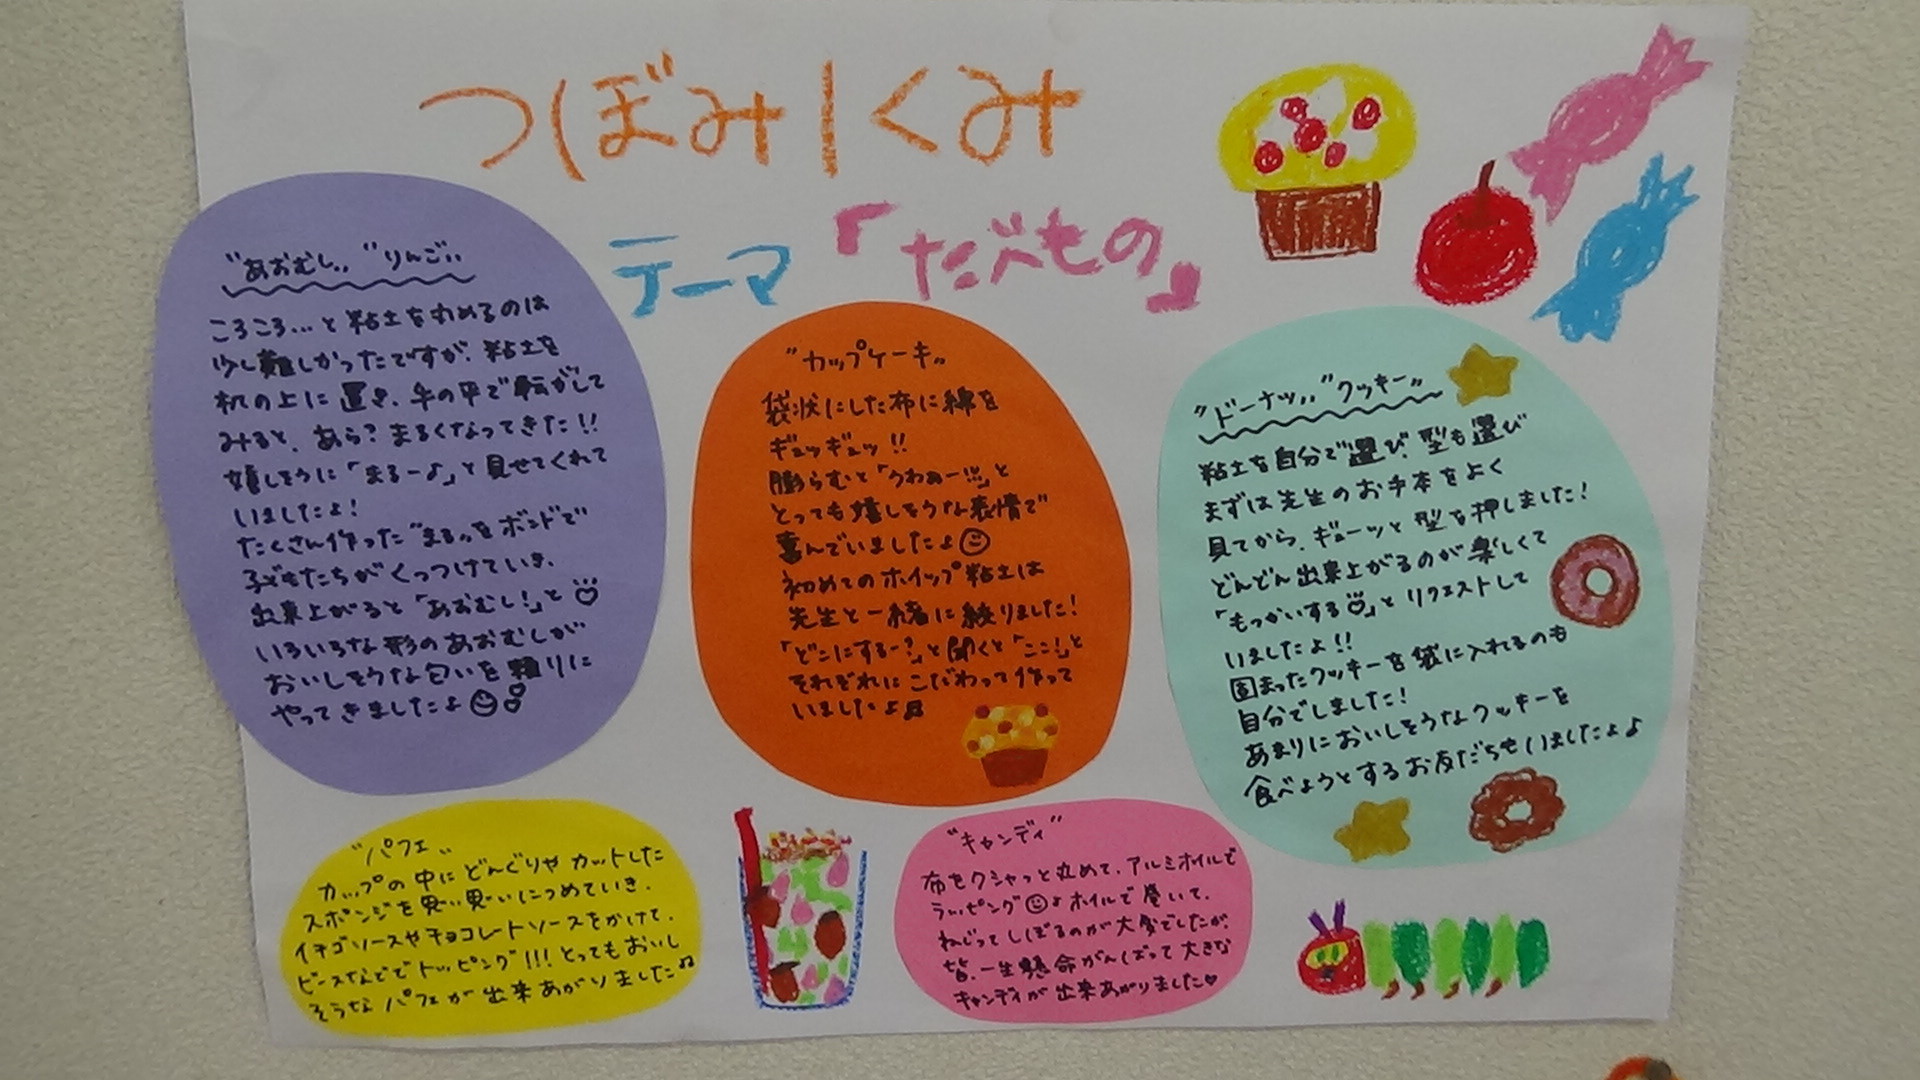 つぼみ1くみ
テーマ「たべもの」
"あおむし" "りんご"
ころころ…と粘土を丸めるのは
少し難しかったですが、粘土を
机の上に置き、手の平で転がして
みると、あら?まるくなってきた!!
嬉しそうに「まるー♪」と見せてくれて
いましたよ!
たくさん作った"まる"をボンドで
子どもたちがくっつけていき、
出来上がると「あおむし!」と
いろいろな形のあおむしが
おいしそうな匂いを頼りに
やってきましたよ
"カップケーキ"
袋状にした布に綿を
ギュッギュッ!!
膨らむと「うわぁー!!!」と
とっても嬉しそうな表情で
喜んでいましたよ
初めてのホイップ粘土は
先生と一緒に絞りました!
「どこにするー?」と聞くと「ここ!」と
それぞれにこだわって作って
いましたよ♬
"ドーナツ" "クッキー"
粘土を自分で選び、型も選び
まずは先生のお手本をよく
見てから、ギューッと型を押しました!
どんどん出来上がるのが楽しくて
「もっかいする♡」とリクエストして
いましたよ!!
固まったクッキーを袋に入れるのも
自分でしました!
あまりにおいしそうなクッキーを
食べようとするお友だちもいましたよ♪
"パフェ"
カップの中にどんぐりやカットした
スポンジを思い思いにつめていき、
イチゴソースやチョコレートソースをかけて、
ビーズなどでトッピング!!!とってもおいし
そうなパフェが出来あがりました♫
"キャンディ"
布をクシャっと丸めて、アルミホイルで
ラッピング♪ホイルで巻いて、
ねじってしぼるのが大変でしたが、
皆、一生懸命がんばって大きな
キャンディが出来あがりました♡